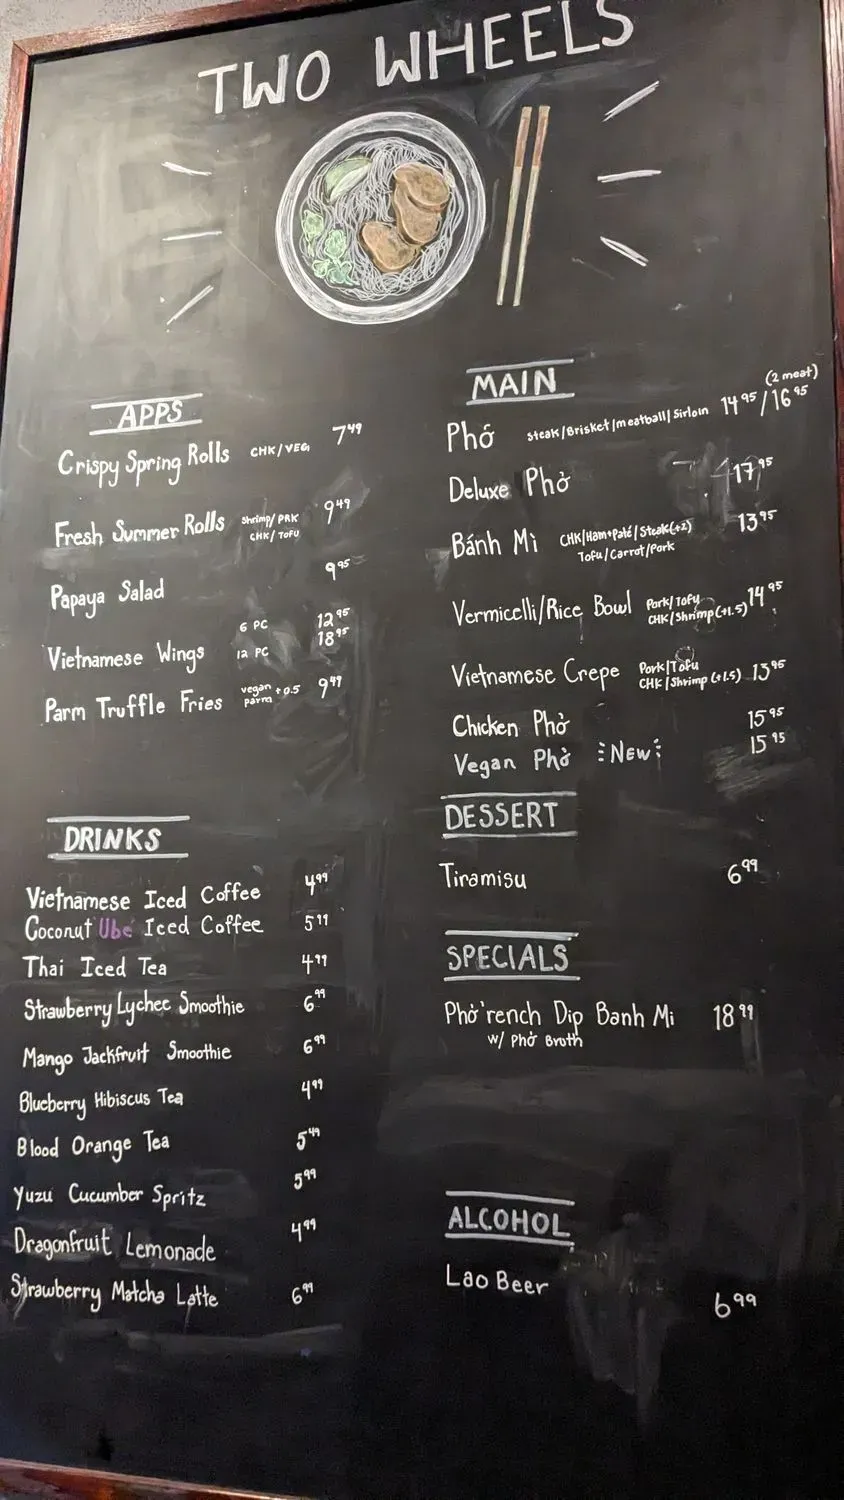 TWO WHEELS
APPS
Crispy Spring Rolls CHK/VEG 7⁴⁹
Fresh Summer Rolls Shrimp/PRK 9⁴⁹
CHK/TOFU
Papaya Salad 9⁹⁵
Vietnamese Wings 6 PC 12⁹⁵
12 PC 18⁹⁵
Parm Truffle Fries vegan parm +0.5 9⁴⁹
DRINKS
Vietnamese Iced Coffee 4⁹⁹
Coconut Ube Iced Coffee 5⁹⁹
Thai Iced Tea 4⁹⁹
Strawberry Lychee Smoothie 6⁹⁹
Mango Jackfruit Smoothie 6⁹⁹
Blueberry Hibiscus Tea 4⁹⁹
Blood Orange Tea 5⁴⁹
Yuzu Cucumber Spritz 5⁹⁹
Dragonfruit Lemonade 4⁹⁹
Strawberry Matcha Latte 6⁹⁹
MAIN
(2 meat)
Phở steak/Brisket/meatball/Sirloin 14⁹⁵/16⁹⁵
Deluxe Phở 17⁹⁵
Bánh Mì CHK/Ham+Paté/Steak(+2) 13⁹⁵
Tofu/Carrot/Pork
Vermicelli/Rice Bowl Pork/Tofu 14⁹⁵
CHK/Shrimp(+1.5)
Vietnamese Crepe Pork/Tofu 13⁹⁵
CHK/Shrimp(+1.5)
Chicken Phở 15⁹⁵
Vegan Phở NEW 15⁹⁵
DESSERT
Tiramisu 6⁹⁹
SPECIALS
Phở'rench Dip Banh Mi 18⁹⁹
w/ Phở Broth
ALCOHOL
Lao Beer 6⁹⁹